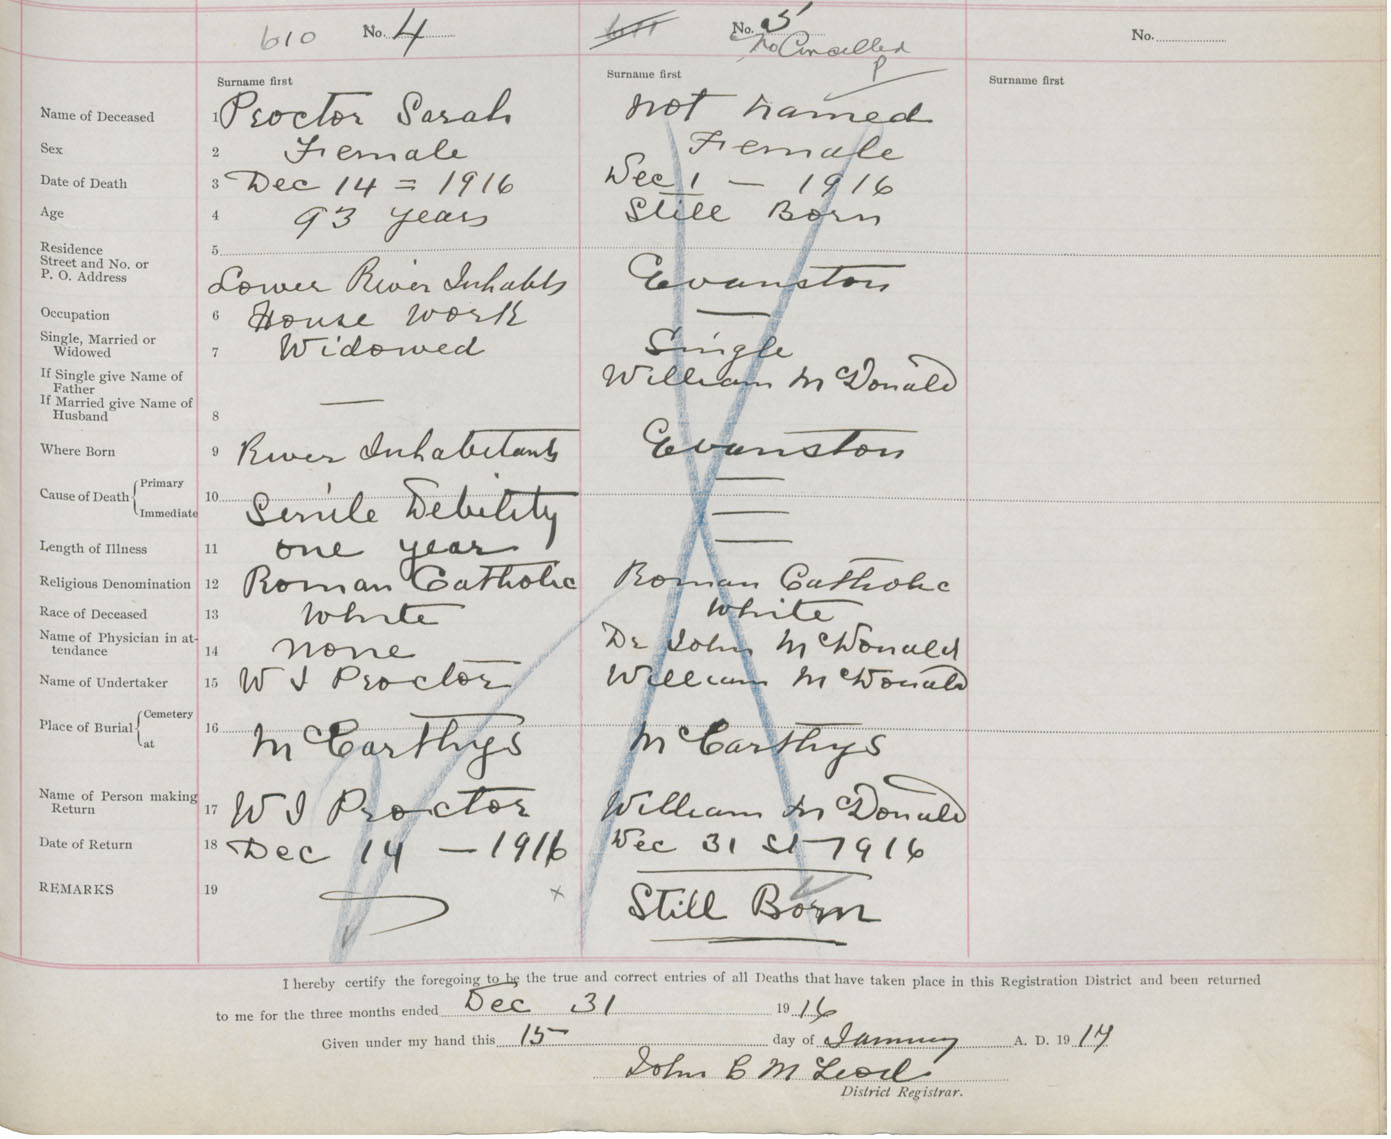 610 No. 4 611 No. 5 No.
No Cancelled
P
Surname first Surname first Surname first
Name of Deceased 1 Proctor Sarah not named
Sex 2 Female Female
Date of Death 3 Dec 14 = 1916 Dec 1 — 1916
Age 4 93 years Still Born
Residence 5
Street and No. or
P. O. Address Lower River Inhabts Evanston
Occupation 6 House work —
Single, Married or
Widowed 7 Widowed Single
If Single give Name of
Father William McDonald
If Married give Name of
Husband 8 —
Where Born 9 River Inhabitants Evanston
Cause of Death { Primary —
10 Senile Debility —
Immediate
Length of Illness 11 one year —
Religious Denomination 12 Roman Catholic Roman Catholic
Race of Deceased 13 White White
Name of Physician in at-
tendance 14 none Dr John McDonald
Name of Undertaker 15 W J Proctor William McDonald
Place of Burial { Cemetery
at 16 McCarthys McCarthys
Name of Person making
Return 17 W J Proctor William McDonald
Date of Return 18 Dec 14 — 1916 Dec 31 st 1916
REMARKS 19 x Still Born
I hereby certify the foregoing to be the true and correct entries of all Deaths that have taken place in this Registration District and been returned
to me for the three months ended Dec 31 1916
Given under my hand this 15 day of January A. D. 1917
John C McLeod
District Registrar.